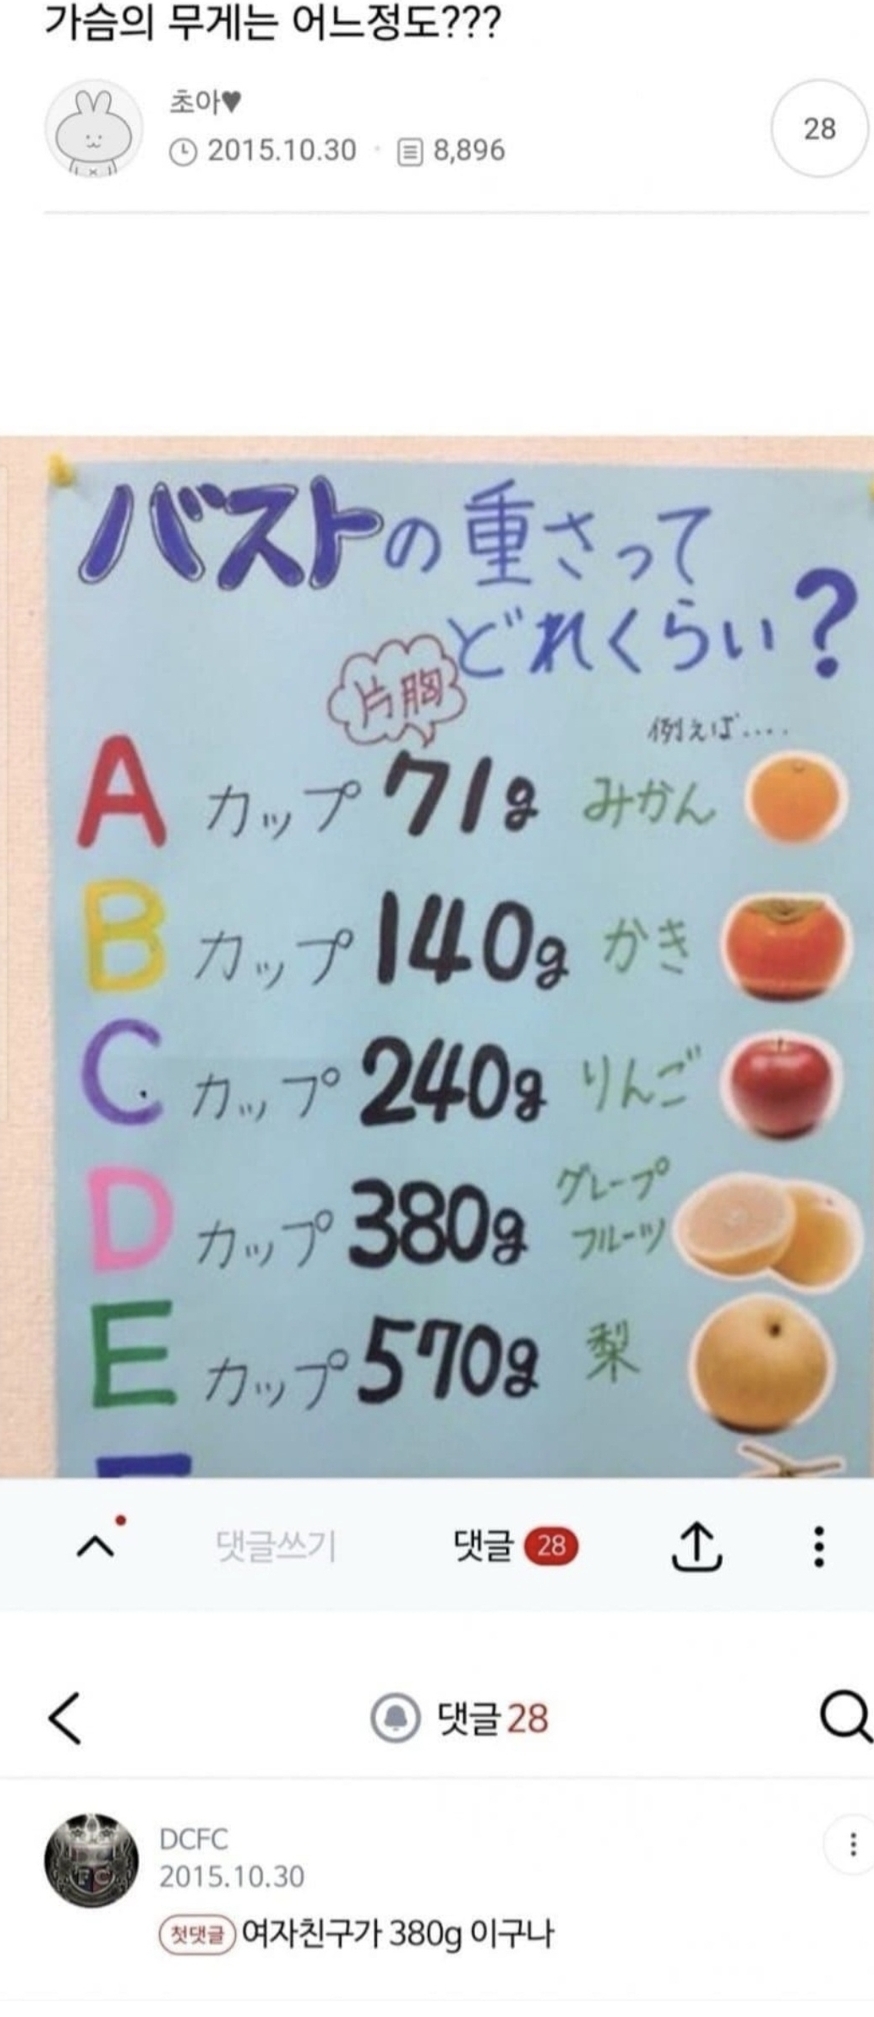 가슴의 무게는 어느정도???
초아♥
2015.10.30 · 8,896
28
バストの重さって
どれくらい?
片胸
例えば....
A カップ 71g みかん
B カップ 140g かき
C カップ 240g りんご
D カップ 380g グレープ
フルーツ
E カップ 570g 梨
댓글쓰기 댓글 28
댓글 28
DCFC
2015.10.30
첫댓글 여자친구가 380g 이구나